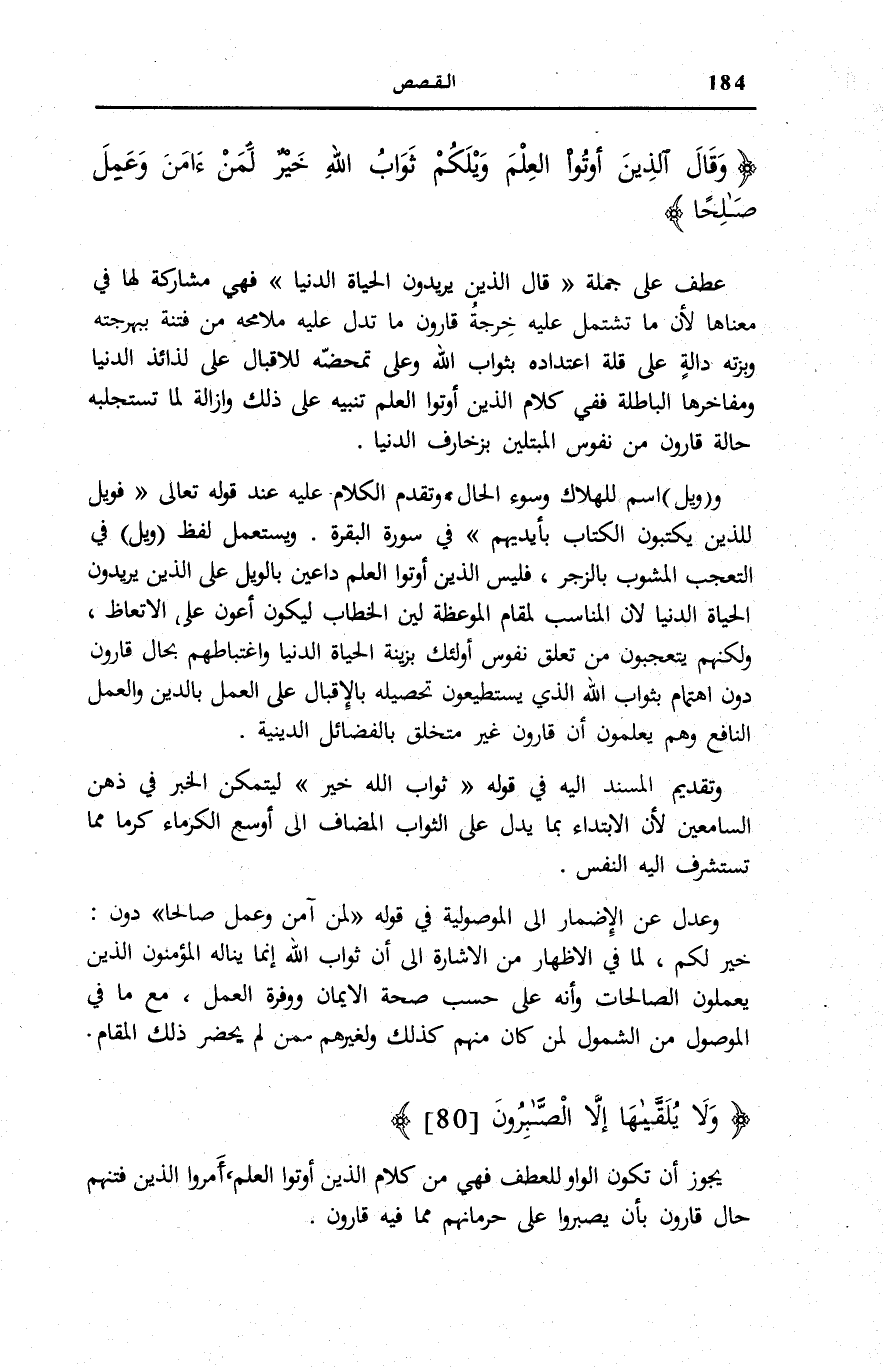 184 القصص
﴿ وَقَالَ ٱلذِينَ أُوتُواْ العِلْمَ وَيْلَكُمْ ثَوَابُ اللهِ خَيْرٌ لِّمَنْ ءَامَنَ وَعَمِلَ
صَـٰلِحًا ﴾
عطف على جملة « قال الذين يريدون الحياة الدنيا » فهي مشاركة لها في
معناها لأن ما تشتمل عليه خِرجةُ قارون ما تدل عليه ملامحه من فتنة ببهرجته
وبزته دالةٍ على قلة اعتداده بثواب الله وعلى تمحضّه للاقبال على لذائذ الدنيا
ومفاخرها الباطلة ففي كلام الذين أوتوا العلم تنبيه على ذلك وازالة لما تستجلبه
حالة قارون من نفوس المبتلين بزخارف الدنيا .
و(ويل)اسم للهلاك وسوء الحال،وتقدم الكلام عليه عند قوله تعالى « فويل
للذين يكتبون الكتاب بأيديهم » في سورة البقرة . ويستعمل لفظ (ويل) في
التعجب المشوب بالزجر ، فليس الذين أوتوا العلم داعين بالويل على الذين يريدون
الحياة الدنيا لان المناسب لمقام الموعظة لين الخطاب ليكون أعون على الاتعاظ ،
ولكنهم يتعجبون من تعلق نفوس أولئك بزينة الحياة الدنيا واغتباطهم بحال قارون
دون اهتمام بثواب الله الذي يستطيعون تحصيله بالإقبال على العمل بالدين والعمل
النافع وهم يعلمون أن قارون غير متخلق بالفضائل الدينية .
وتقديم المسند اليه في قوله « ثواب الله خير » ليتمكن الخبر في ذهن
السامعين لأن الابتداء بما يدل على الثواب المضاف الى أوسع الكرماء كرما مما
تستشرف اليه النفس .
وعدل عن الإضمار الى الموصولية في قوله «لمن آمن وعمل صالحا» دون :
خير لكم ، لما في الاظهار من الاشارة الى أن ثواب الله إنما يناله المؤمنون الذين
يعملون الصالحات وأنه على حسب صحة الايمان ووفرة العمل ، مع ما في
الموصول من الشمول لمن كان منهم كذلك ولغيرهم ممن لم يحضر ذلك المقام.
﴿ وَلَا يُلَقَّيـٰهَا إلَّا الْصَّـٰبِرُونَ [80] ﴾
يجوز أن تكون الواو للعطف فهي من كلام الذين أوتوا العلم،أَمروا الذين فتنهم
حال قارون بأن يصبروا على حرمانهم مما فيه قارون .